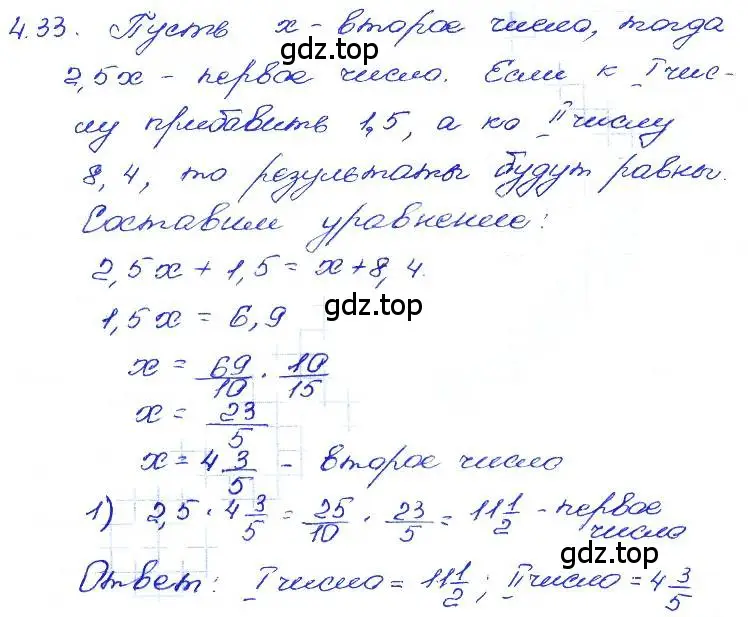 4.33. Пусть x - второе число, тогда
2,5x - первое число. Если к I чис-
лу прибавить 1,5, а ко II числу
8,4, то результаты будут равны.
Составим уравнение:
2,5x + 1,5 = x + 8,4.
1,5x = 6,9
x = 69/10 · 10/15
x = 23/5
x = 4 3/5 - второе число
1) 2,5 · 4 3/5 = 25/10 · 23/5 = 11 1/2 - первое число
Ответ: I число = 11 1/2; II число = 4 3/5
gdz.top
gdz.top
gdz.top
gdz.top